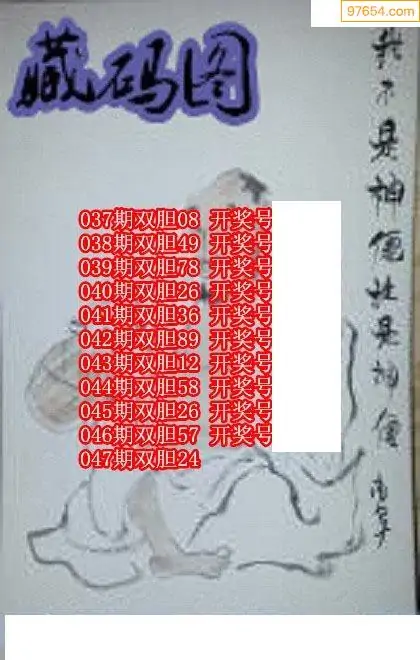 97654.com
藏码图
我不是神僊谁是神僊
037期双胆08 开奖号
038期双胆49 开奖号
039期双胆78 开奖号
040期双胆26 开奖号
041期双胆36 开奖号
042期双胆89 开奖号
043期双胆12 开奖号
044期双胆58 开奖号
045期双胆26 开奖号
046期双胆57 开奖号
047期双胆24